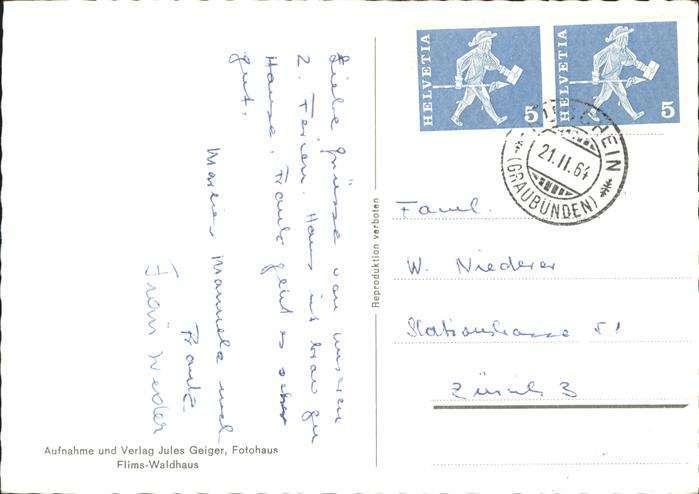 Liebe Grüsse von unseren
2. Ferien. Hans ist brav zu
Hause. Frank geht es sehr
gut.
Marlies Manuela und
Frank
Fräni Weder
Aufnahme und Verlag Jules Geiger, Fotohaus
Flims-Waldhaus
Reproduktion verboten
HELVETIA 5
HELVETIA 5
RHEIN
21.II.64
(GRAUBÜNDEN)
Faml.
W. Niederer
Stationsstrasse 51
Zürich 3